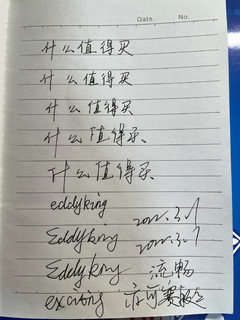 Date. No.
什么值得买
什么值得买
什么值得买
什么值得买
什么值得买
eddyking
2022.3.1
Eddyking
2022.3.7
Eddyking 流畅
exciting